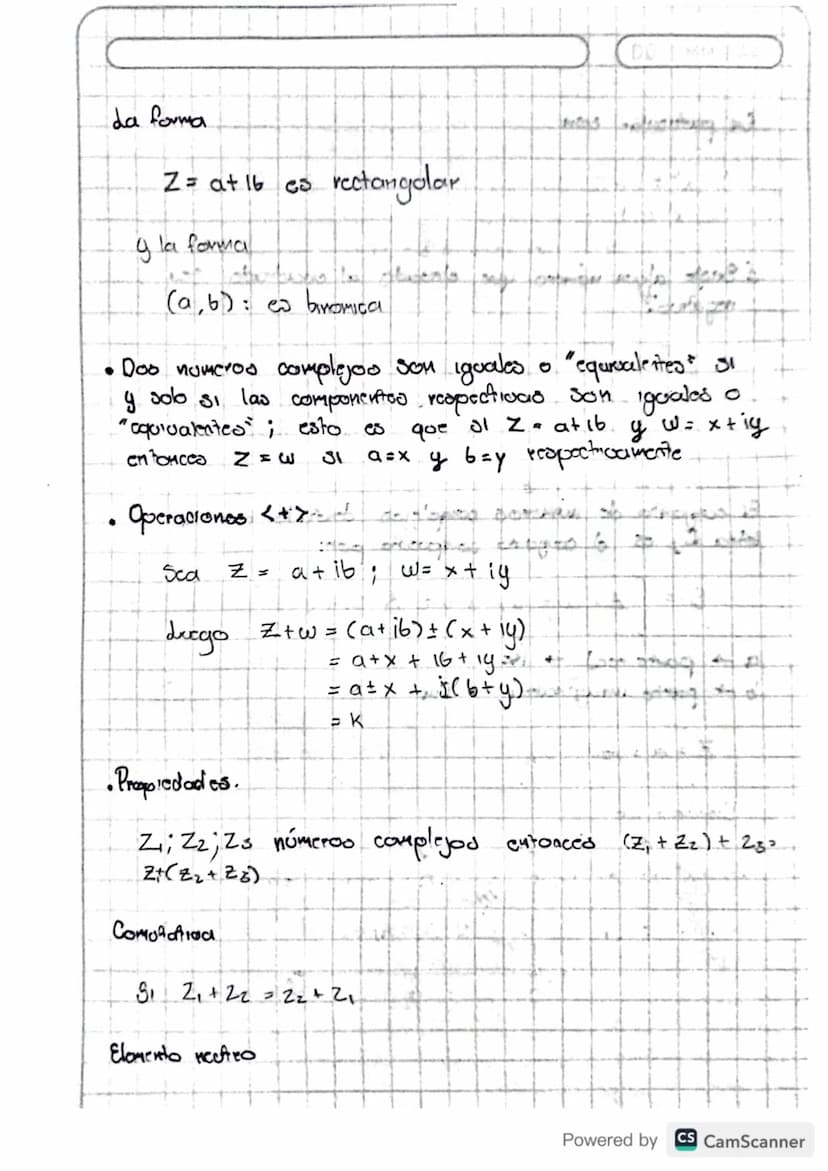 La forma
Z = a + ib es rectangular
y la forma
(a,b) : es binomica
• Dos numeros complejos son iguales o "equivalentes" si
y solo si las componentes respectivas son iguales o
"equivalentes" ; esto es que si Z = a + ib y w = x + iy
entonces Z = w si a = x y b = y respectivamente
• Operaciones <+>
Sea Z = a + ib ; w = x + iy
Luego Z + w = (a + ib) ± (x + iy)
= a + x + ib + iy
= a ± x + i(b + y)
= K
• Propiedades.
Z₁ ; Z₂ ; Z₃ números complejos entonces (Z₁ + Z₂) + Z₃ =
Z + (Z₂ + Z₃)
Conmutativa
Si Z₁ + Z₂ = Z₂ + Z₁
Elemento neutro
Powered by CS CamScanner